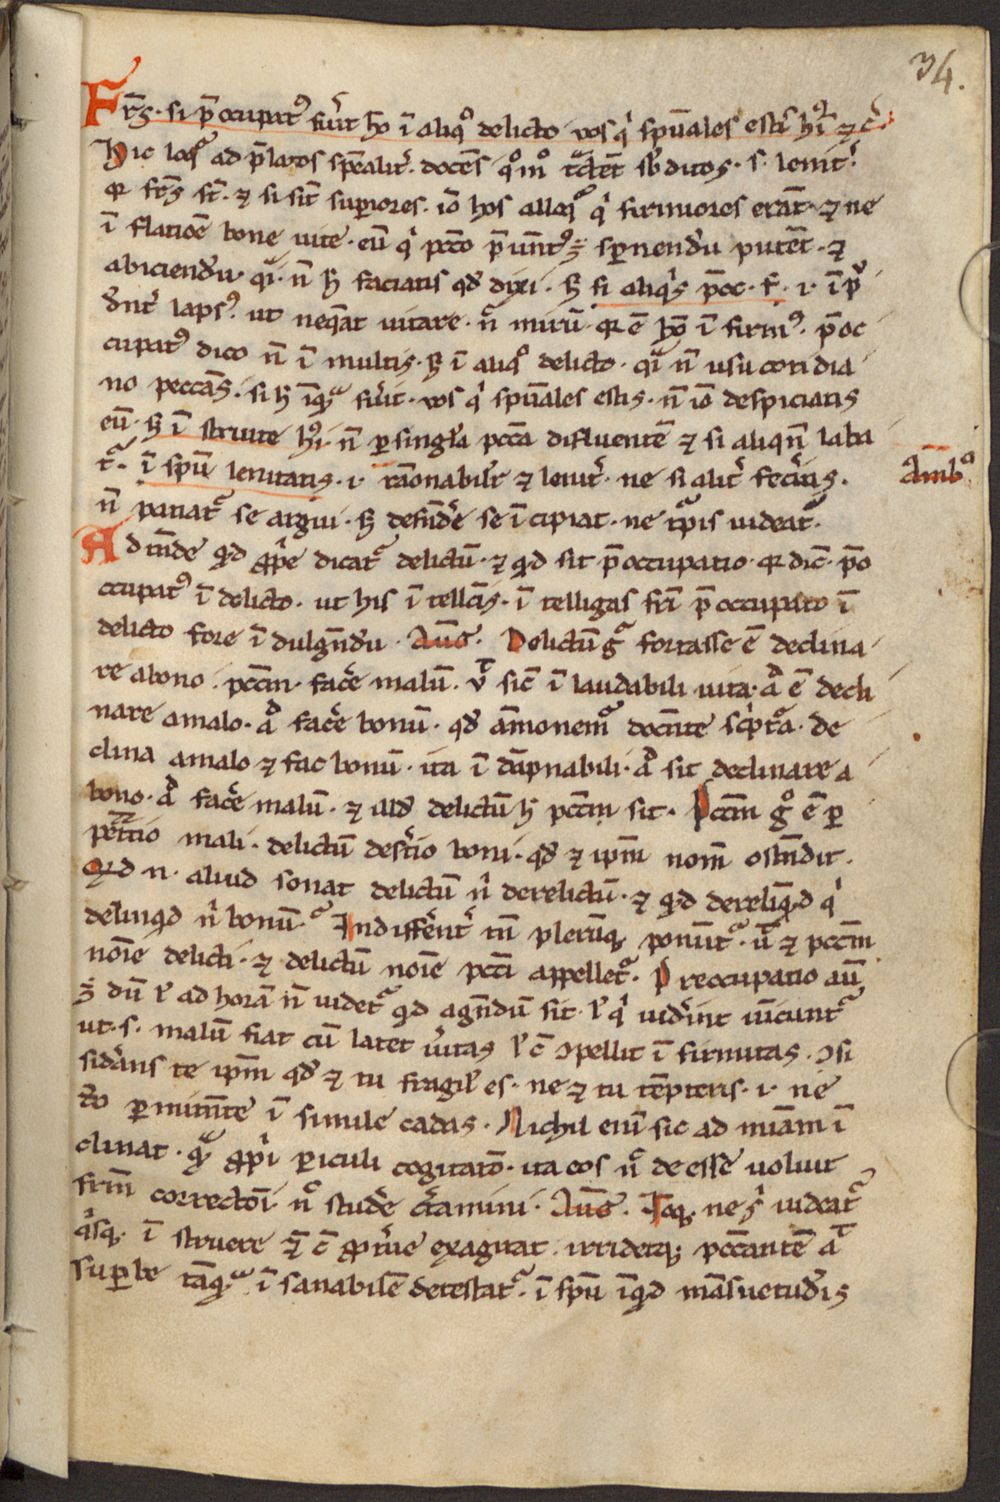 34.
Fr̄s. si p̄occupatꝰ fuīt hō ī aliqͦ delicto uos qͥ sp̄uales estis hiꝰ ⁊ c̄.
Hic loqͬ ad p̄latos sp̄ealit̉. docēs qͦm̊ tͣctēt sb̄ditos. s. lenit̉.
qr fr̄s st̄. ⁊ si sīt superiores. iō hos alloqͬ qͥ firmiores erāt. ⁊ ne
ī flatiōe bone uite. eū qͥ pctō p̄uēntꝰ ē spnendū putēt. ⁊
abiciendū. qͣi. n̄ ħ faciatis qđ dixi. ꝫ si aliqͥs p̄oc. f. i. īpͮ
dēnt̉ lapsꝰ. ut neqͣat uitare. n̄ mirū. qr ē hō ī firmꝰ. p̄oc
cupatꝰ dico n̄ ī multis. ꝫ ī aliqͦ delicto. qͣi n̄ usu cotidia
no peccās. si ħ īqͣ fuīt. uos qͥ sp̄uales estis. n̄ iō despiciatis
eū. ꝫ ī struite hꝰi. n̄ ꝑ singl̄a pctā difluentē ⁊ si aliqn̄ laba
tͬ. ī sp̄u lenitatis. i. rōnabilit̉ ⁊ lenit̉. ne si alit̉ fec̉itis.
Amb̊
n̄ patiatͬ se argui. ꝫ defēnde̓ se īcipiat. ne tͥpis uideatͬ.
Adtēnde qͥd ꝓpͥe dicatͬ delictū. ⁊ qͥd sit p̄occupatio. qr dic̄. p̄o
ccupatꝰ ī delicto. ut his ī tellētis. ī telligas fr̄i p̄occupato ī
delicto fore ī dulgēndū. Auḡ. Delictū gͦ fortasse ē declina
re a bono. pctm̄. fac̉e malū. uͬ sic̄ ī laudabili uita. aͩ ē decli
nare a malo. aͩ fac̉e bonū. qđ am̄onemͬ docēnte sc̉ptͣa. de
clina a malo ⁊ fac bonū. ita ī dāpnabili. aͩ sit declinare a
bono. aͩ fac̉e malū. ⁊ illđ delictū ħ pctm̄ sit. Pctm̄ gͦ ē ꝑ
petratio mali. delictū des̉tio boni. qđ ⁊ ipm̄ nom̄ ostēndit.
Qͥd n. aliud sonat delictū nͥ derelictū. ⁊ qͥd derelīqͥd qͥ
delinqͥd nͥ bonū. Indiffērēnt̉ tn̄ plerūqꝫ ponūtͬ. uͬ ⁊ pctm̄
noīe delicti. ⁊ delictū noīe pcti appelletͬ. Preoccupatio aūt
ē dū ł ad horā n̄ uidetͬ qͥd agēndū sit. ł qͥ uid̉int uīcuntͬ
ut. s. malū fiat cū latet u̓itas ł c̄ ɔpellit ī firmitas. ɔsi
sid̉ans te ipm̄ qđ ⁊ tu fragil̓ es. ne ⁊ tu tēpteris. i. ne
do pmittēnte ī simile cadas. Nichil enī sic ad mīam ī
clinat. qͣ ꝓpͥi ꝑiculi cogitatō. ita eos n̄ deesse uoluit
frm̄ correctōi. n̄ stude̓ c̉tamini. Auḡ. Itaqꝫ ne sͥ uideatͬ
qͥsqꝫ ī struere qͣ c̄ ꝓt̉ue exagitat. irridetqꝫ pccantē aͬ
superbe tāqͣ ī sanabilē detestatͬ. ī sp̄u īqͥd māsuetud̉is